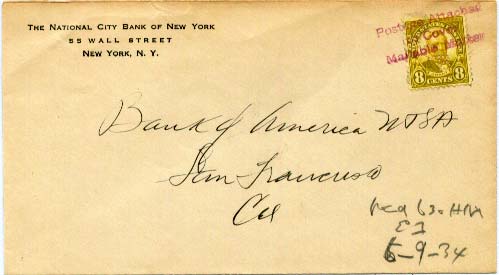 THE NATIONAL CITY BANK OF NEW YORK
55 WALL STREET
NEW YORK, N. Y.
Postage Attached
Cover
Mailable Matter
8 CENTS 8
Bank of America NTSA
San Francisco
Cal
rec'd 630
5-9-34